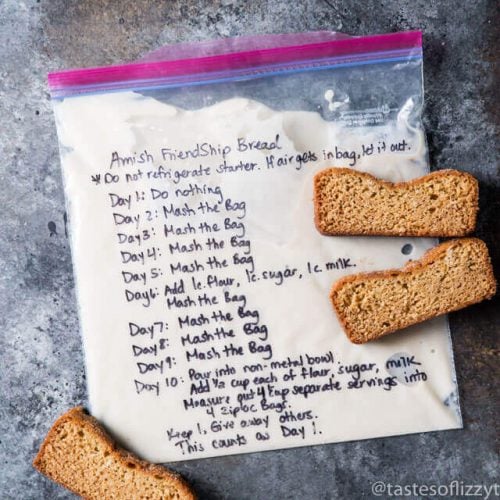 Amish FriendShip Bread
*Do not refrigerate starter. If air gets in bag, let it out.
Day 1: Do nothing
Day 2: Mash the Bag
Day 3: Mash the Bag
Day 4: Mash the Bag
Day 5: Mash the Bag
Day 6: Add 1c. flour, 1c. sugar, 1c. milk.
Mash the Bag
Day 7: Mash the Bag
Day 8: Mash the Bag
Day 9: Mash the Bag
Day 10: Pour into non-metal bowl.
Add ½ cup each of flour, sugar, milk
Measure out 4 1 cup separate servings into
4 Ziploc Bags.
Keep 1. Give away others.
This counts as Day 1.
@tastesoflizzyt